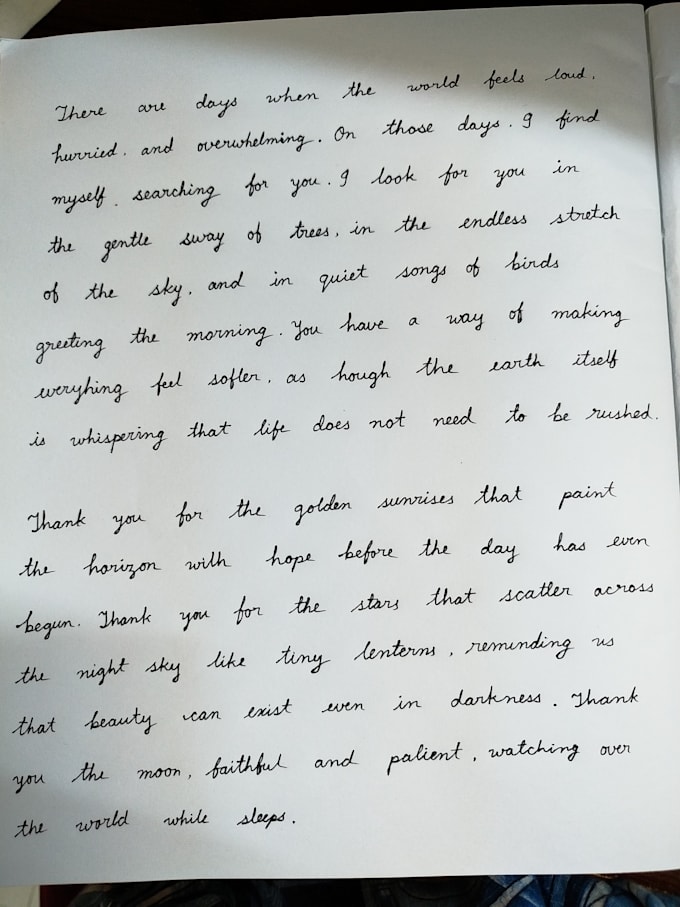 There are days when the world feels loud,
hurried, and overwhelming. On those days, I find
myself, searching for you. I look for you in
the gentle sway of trees, in the endless stretch
of the sky, and in quiet songs of birds
greeting the morning. You have a way of making
everyhing feel softer, as hough the earth itself
is whispering that life does not need to be rushed.
Thank you for the golden sunrises that paint
the horizon with hope before the day has even
begun. Thank you for the stars that scatter across
the night sky like tiny lenterns, reminding us
that beauty can exist even in darkness. Thank
you the moon, faithful and patient, watching over
the world while sleeps.